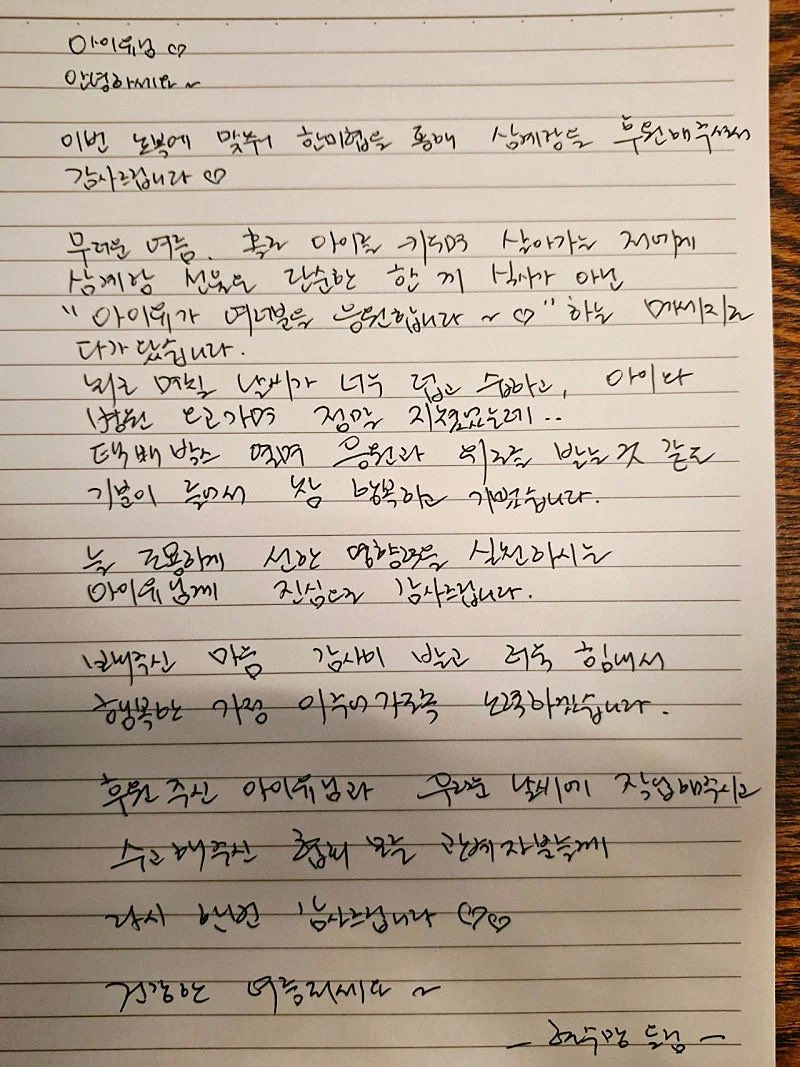 아이유님 ♡
안녕하세요~
이번 초복에 맞춰 한미협을 통해 삼계탕을 후원해주셔서
감사드립니다 ♡
무더운 여름, 홀로 아이를 키우며 살아가는 저에게
삼계탕 선물은 단순한 한 끼 식사가 아닌
"아이유가 여러분을 응원합니다~♡" 하는 메세지로
다가 왔습니다.
최근 며칠 날씨가 너무 덥고 습하고, 아이나
병원 오고가며 정말 지쳤었는데..
택배박스 열며 응원과 위로를 받는것 같은
기분이 들어서 참 행복하고 기뻤습니다.
늘 조용하게 선한 영향력을 실천하시는
아이유님께 진심으로 감사드립니다.
보내주신 마음 감사히 받고 더욱 힘내서
행복한 가정 이루어가도록 노력하겠습니다.
후원 주신 아이유님과 무더운 날씨에 작업해주시고
수고해주신 협회 모든 관계자분들께
다시 한번 감사드립니다 ♡♡
건강한 여름되세요~
드림 -